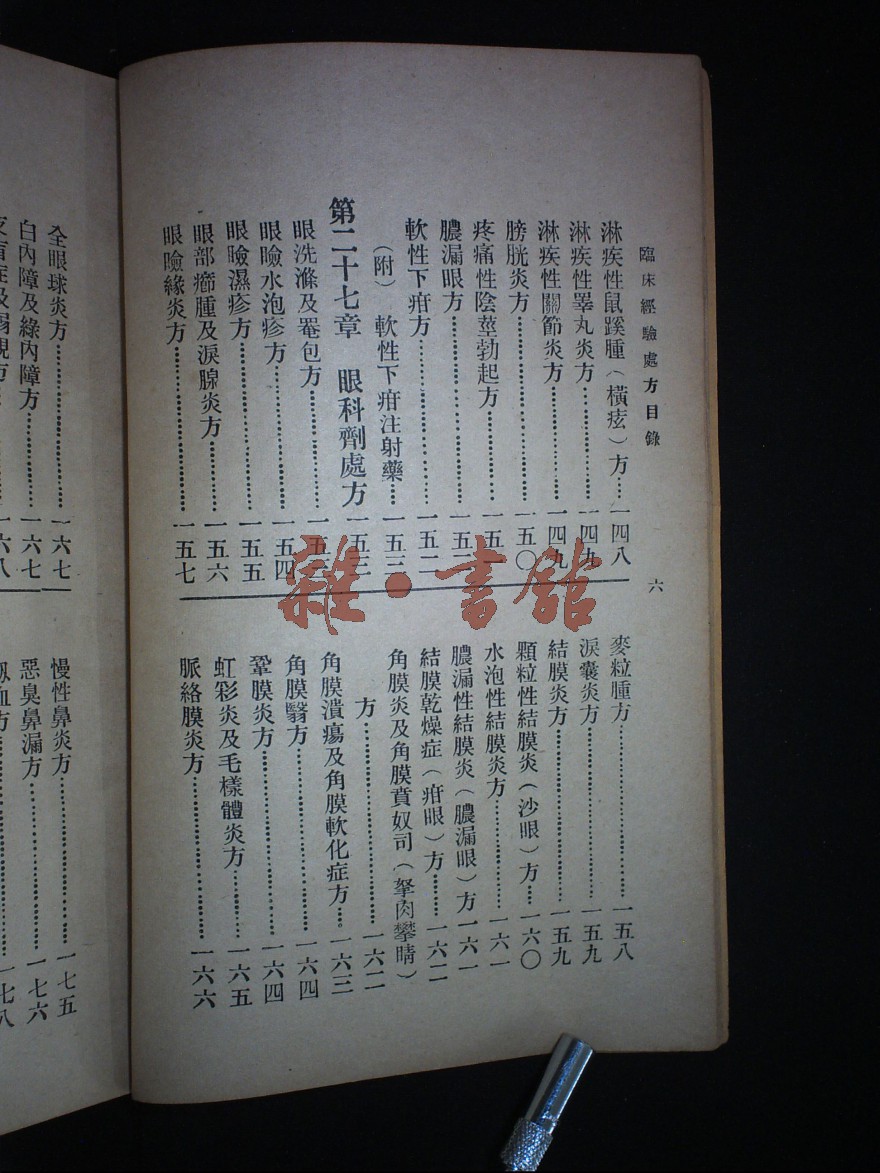 臨床經驗處方目錄
六
淋疾性鼠蹊腫(橫痃)方…一四八
淋疾性睪丸炎方…………一四九
淋疾性關節炎方…………一四九
膀胱炎方…………………一五〇
疼痛性陰莖勃起方………一五一
膿漏眼方…………………一五
軟性下疳方………………一五二
(附) 軟性下疳注射藥…一五三
第二十七章 眼科劑處方 一五三
眼洗滌及罨包方…………一五
眼瞼水泡疹方……………一五四
眼瞼濕疹方………………一五五
眼部癤腫及淚腺炎方……一五六
眼瞼緣炎方………………一五七
麥粒腫方…………………一五八
淚囊炎方…………………一五九
結膜炎方…………………一五九
顆粒性結膜炎(沙眼)方…一六〇
水泡性結膜炎方…………一六一
膿漏性結膜炎(膿漏眼)方一六一
結膜乾燥症(疳眼)方……一六二
角膜炎及角膜賁奴司(胬肉攀睛)
方…………………………一六二
角膜潰瘍及角膜軟化症方…一六三
角膜翳方…………………一六四
鞏膜炎方…………………一六四
虹彩炎及毛樣體炎方……一六五
脈絡膜炎方………………一六六
全眼球炎方………………一六七
白內障及綠內障方………一六七
一六八
慢性鼻炎方………………一七五
惡臭鼻漏方………………一七六
血方………………………一七八
雜·書館